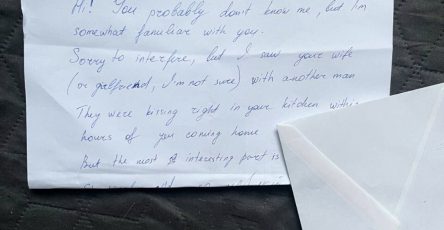 Hi! You probably don't know me, but I'm
somewhat familiar with you.
Sorry to interfire, but I saw your wife
(or girlfriend, I'm not sure) with another man
They were kissing right in your kitchen within
hours of you coming home
But the most of interesting part is